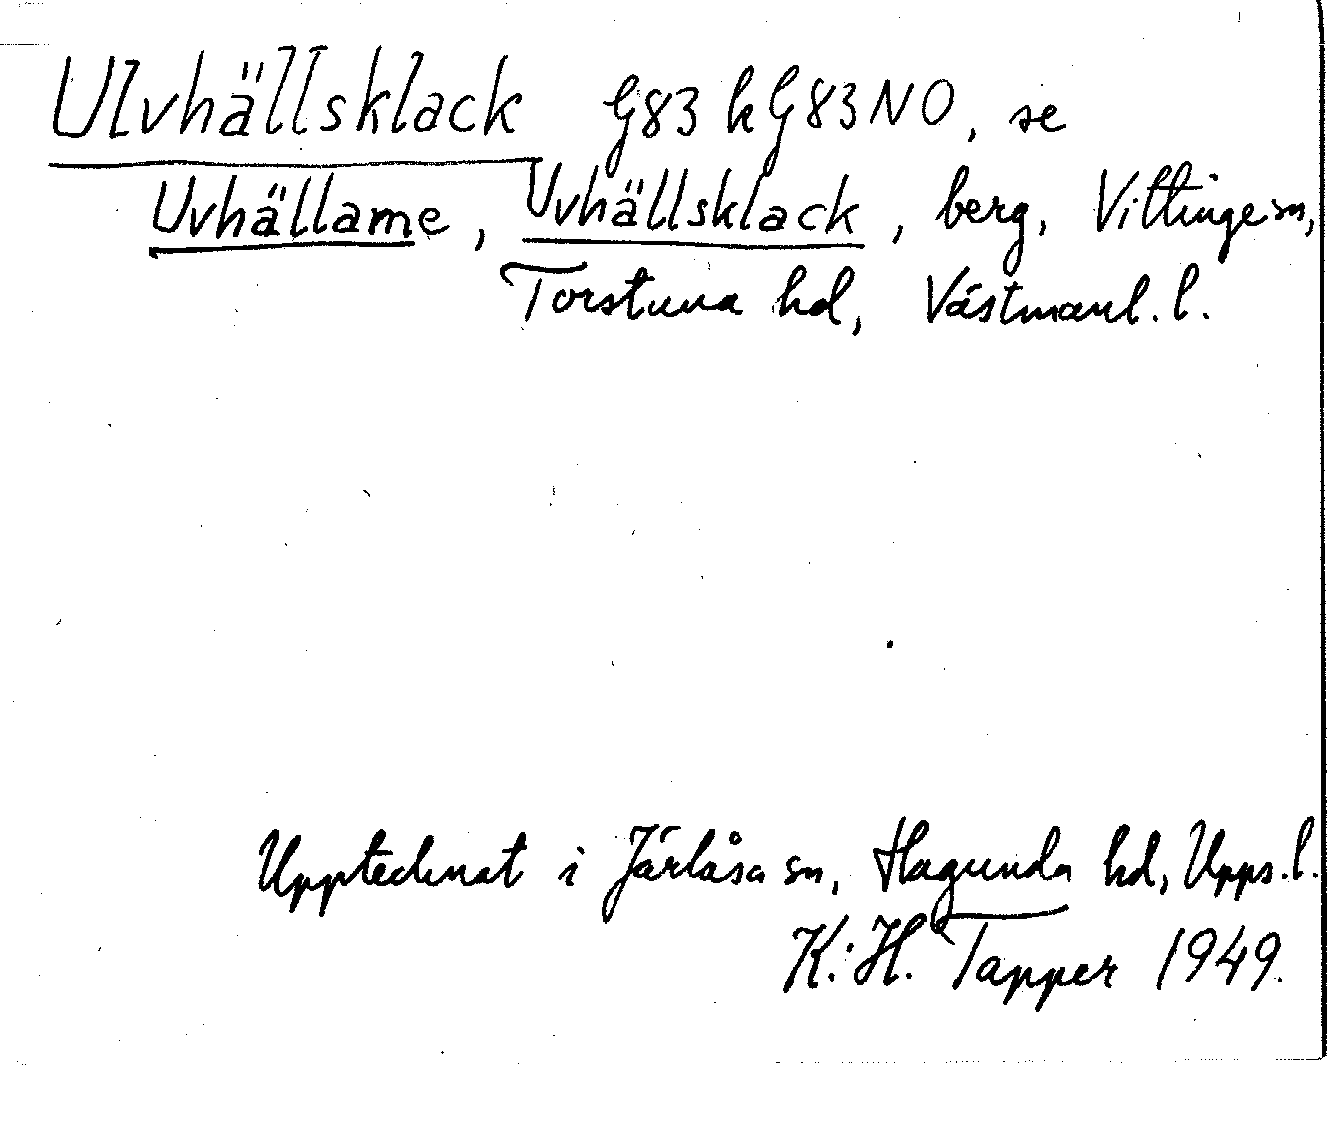 Ulvhällsklack G83 k G83 NO, se
Uvhällame, Uvhällsklack, berg, Vittinge sn,
Torstuna hd, Västmanl. l.
Upptecknat i Järlåsa sn, Hagunda hd, Upps. l.
K. H. Tapper 1949.